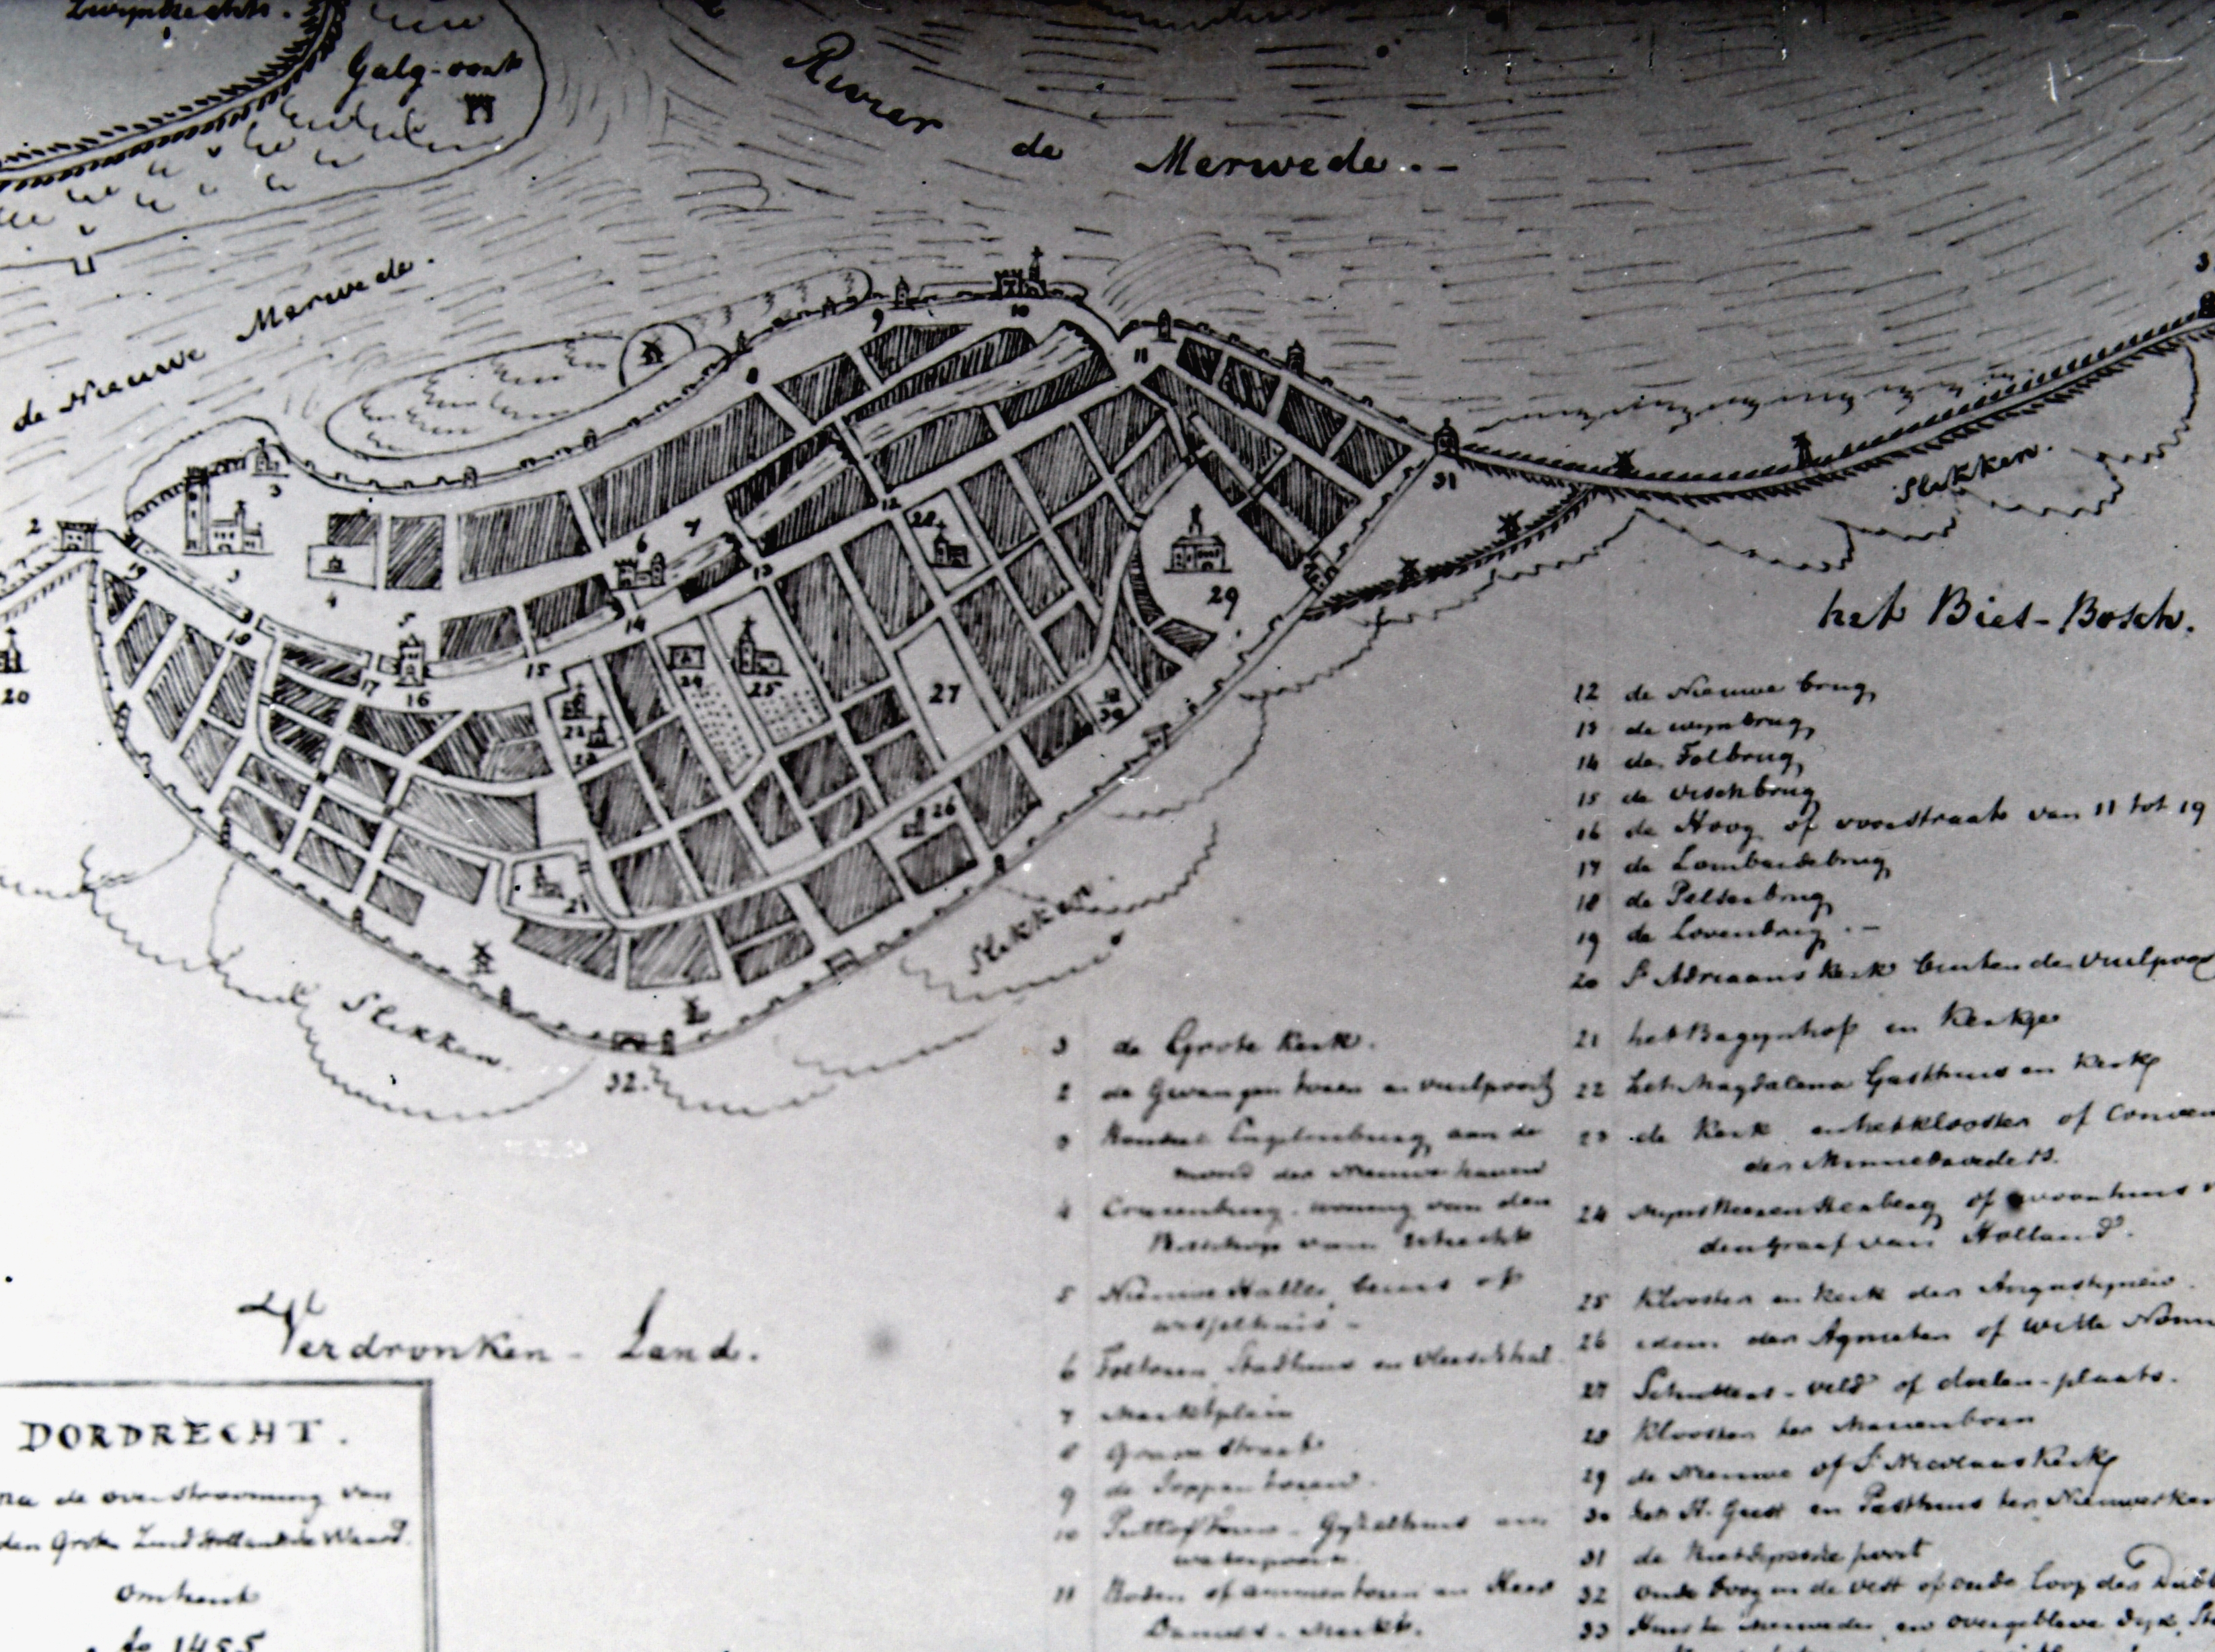 Galg-oort
Rivier de Merwede.-
de Nieuwe Merwede.
Slikken.
het Bies-Bosch.
Slikken.
Slikken.
Verdronken-Land.
DORDRECHT.
na de overstrooming van
den Groten Zuid Hollandsche Waard.
omtrent
Ao 1455
3 de Grote Kerk.
2 de Gevangen toren en vuilpoort
3 Engelenburg aan de
mond der Nieuwe haven
4 Crunenburg. woning van den
Bisschop van Utrecht
5 Nieuwe Halle, beurs of
wisselhuis -
6 Foltoren Stadhuis en vleeschhal
7 Marktplein
8 Groene straat
9 de Joppen toren.
10 en
waterpoort.
11 of ammentoren en Heer
Daniels-Markt.
12 de Nieuwe brug,
13 de wijnbrug,
14 de Tolbrug,
15 de vischbrug,
16 de Hoog of voorstraat van 11 tot 19
17 de Lombardebrug,
18 de Pelsenbrug,
19 de Lovenbrug.-
20 St Adriaans Kerk buiten de vuilpoor
21 het Bagynhof en Kerkje
22 het Magdalena Gasthuis en Kerk,
23 de Kerk en het klooster of Conven
der Minnebroeders.
24 Myns Heeren Herberg of woonhuis v
den Graaf van Holland.
25 Klooster en kerk der Augustynen.
26 idem der Agnieten of Witte Nonn
27 Schutters-veld of doelen-plaats.
28 Klooster ter Marienborn
29 de Nieuwe of St Nicolaas Kerk,
30 het H. Geest en Pesthuis ter Nieuwerker
31 de Rietdijksche poort
32 oude boog in de vest of oude loop der Dubb
33 Huis te Merwede, en overgebleve dijk, St
2
3
3
4
5
6
7
8
9
10
11
12
13
14
15
16
17
18
19
20
21
22
23
24
25
26
27
28
29
30
31
32.